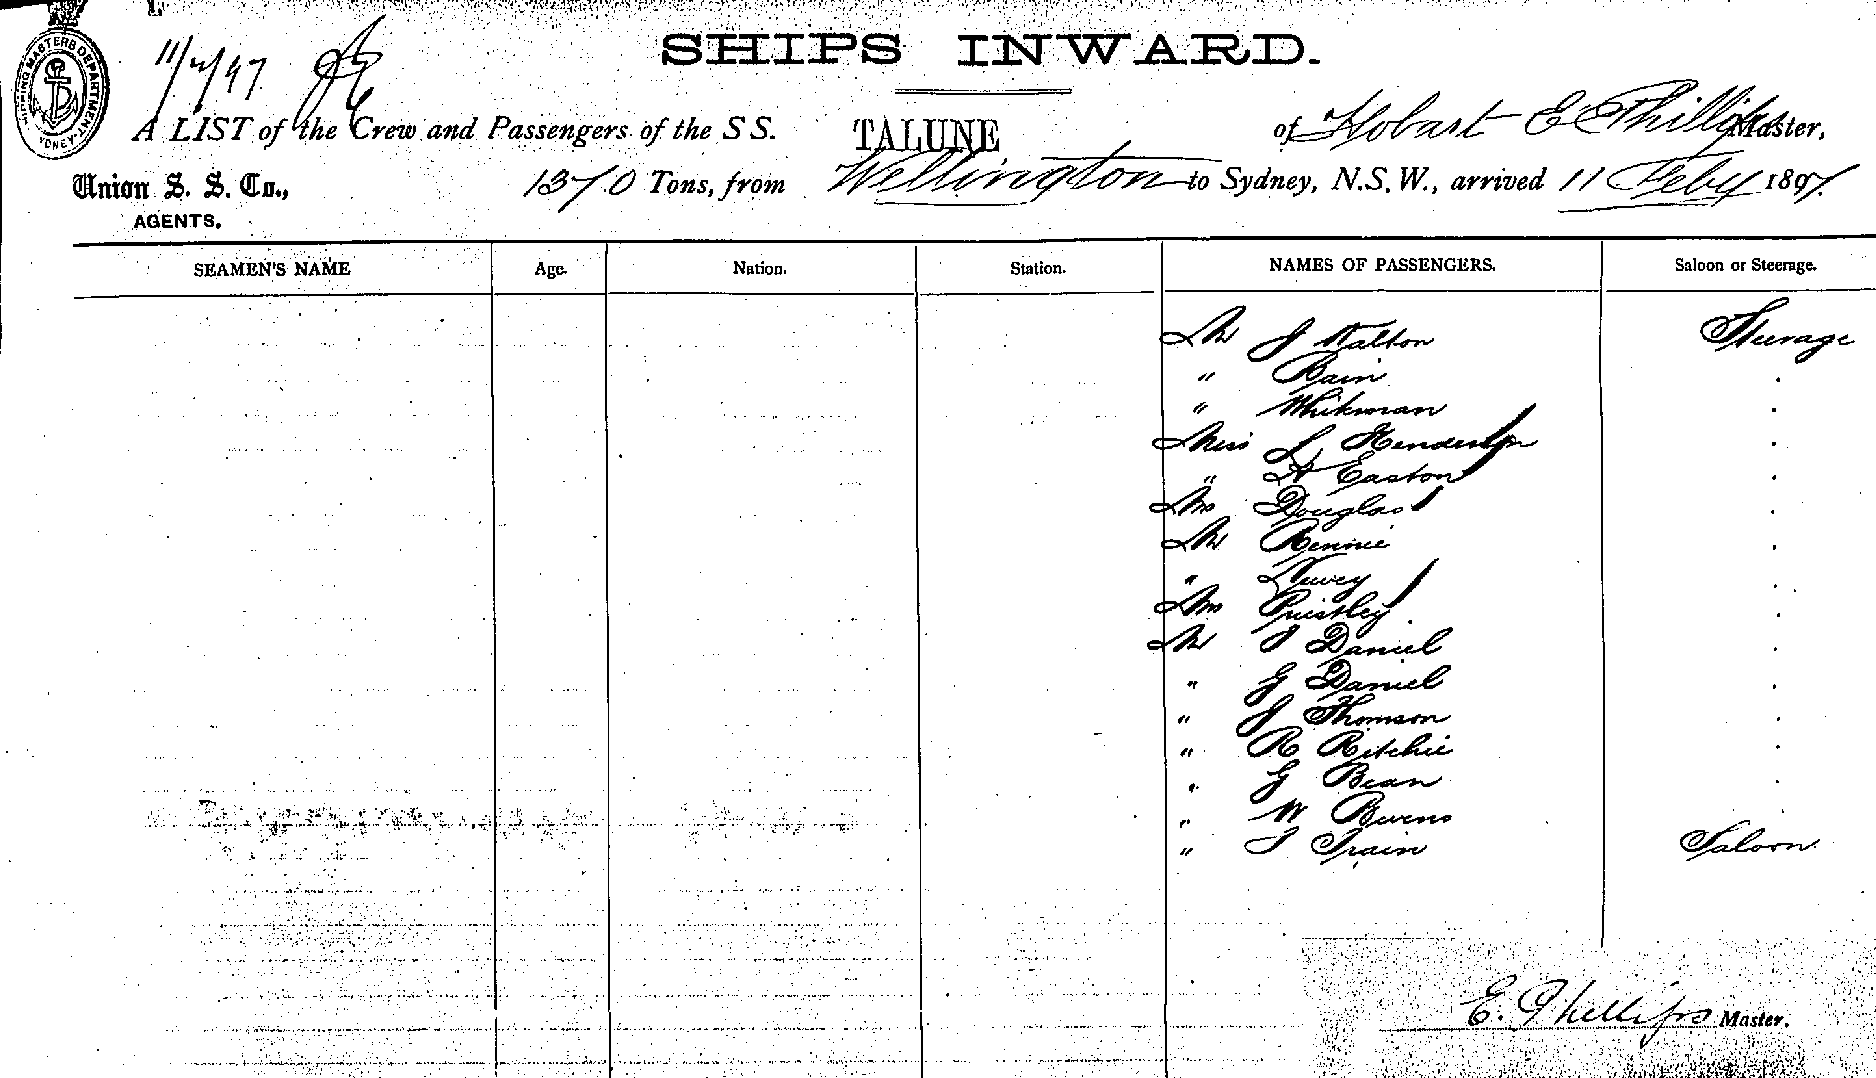 SHIPPING MASTERS DEPARTMENT SYDNEY
11/2/97
SHIPS INWARD.
A LIST of the Crew and Passengers of the S S. TALUNE of Hobart E Phillips Master,
Union S. S. Co., 1370 Tons, from Wellington to Sydney, N.S.W., arrived 11 Feby 1897.
AGENTS.
SEAMEN'S NAME Age. Nation. Station. NAMES OF PASSENGERS. Saloon or Steerage.
Mr J Walton Steerage
" Bain
" Whikman
Miss L Henderson
" A Easton
Mrs Douglas
Mr Rennie
" Nuvey
Mrs Priestley
Mr J Daniel
" G Daniel
" J Thomson
" R Ritchie
" G Bean
" W Burns
" J Train Saloon
E. Phillips Master.